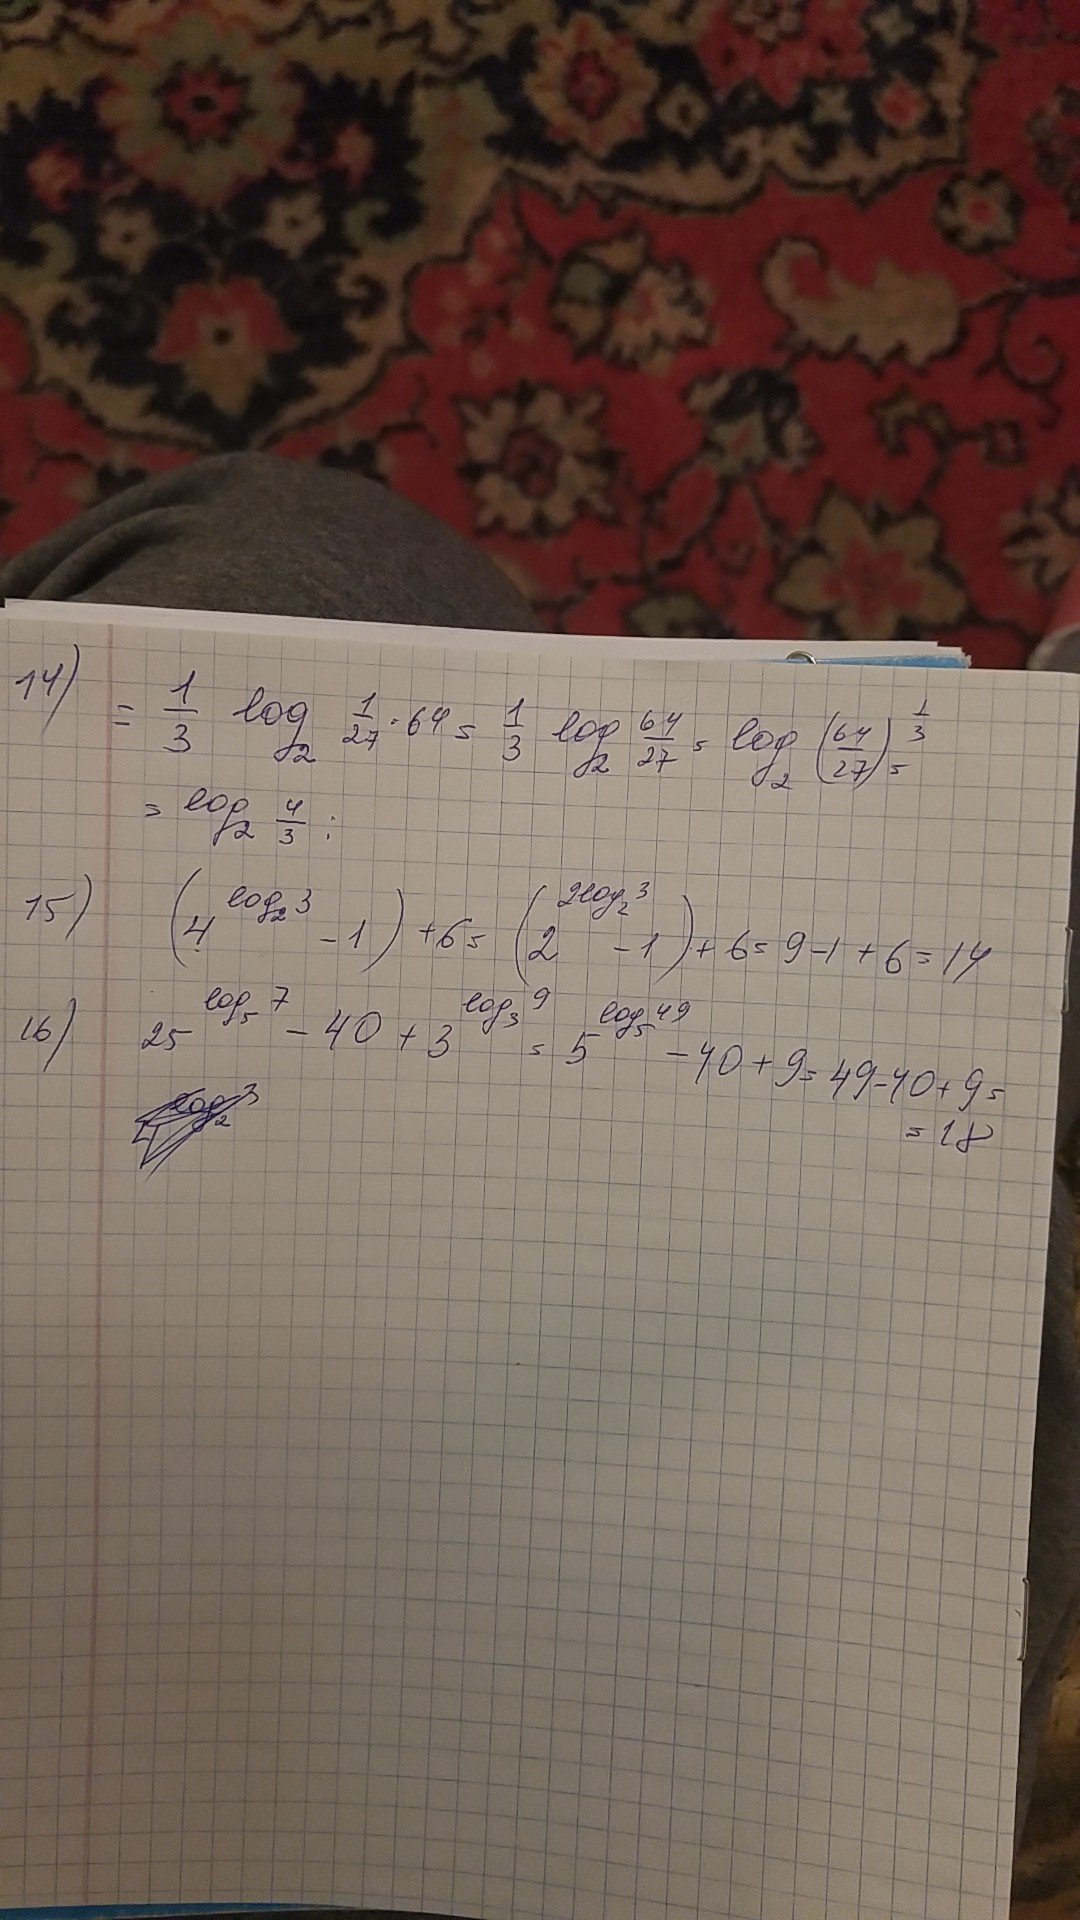 14) = 1/3 log₂ 1/27 · 64 = 1/3 log₂ 64/27 = log₂ (64/27)^(1/3) =
= log₂ 4/3 ;
15) (4^(log₂ 3) - 1) + 6 = (2^(2log₂ 3) - 1) + 6 = 9 - 1 + 6 = 14
16) 25^(log₅ 7) - 40 + 3^(log₃ 9) = 5^(log₅ 49) - 40 + 9 = 49 - 40 + 9 =
= 18